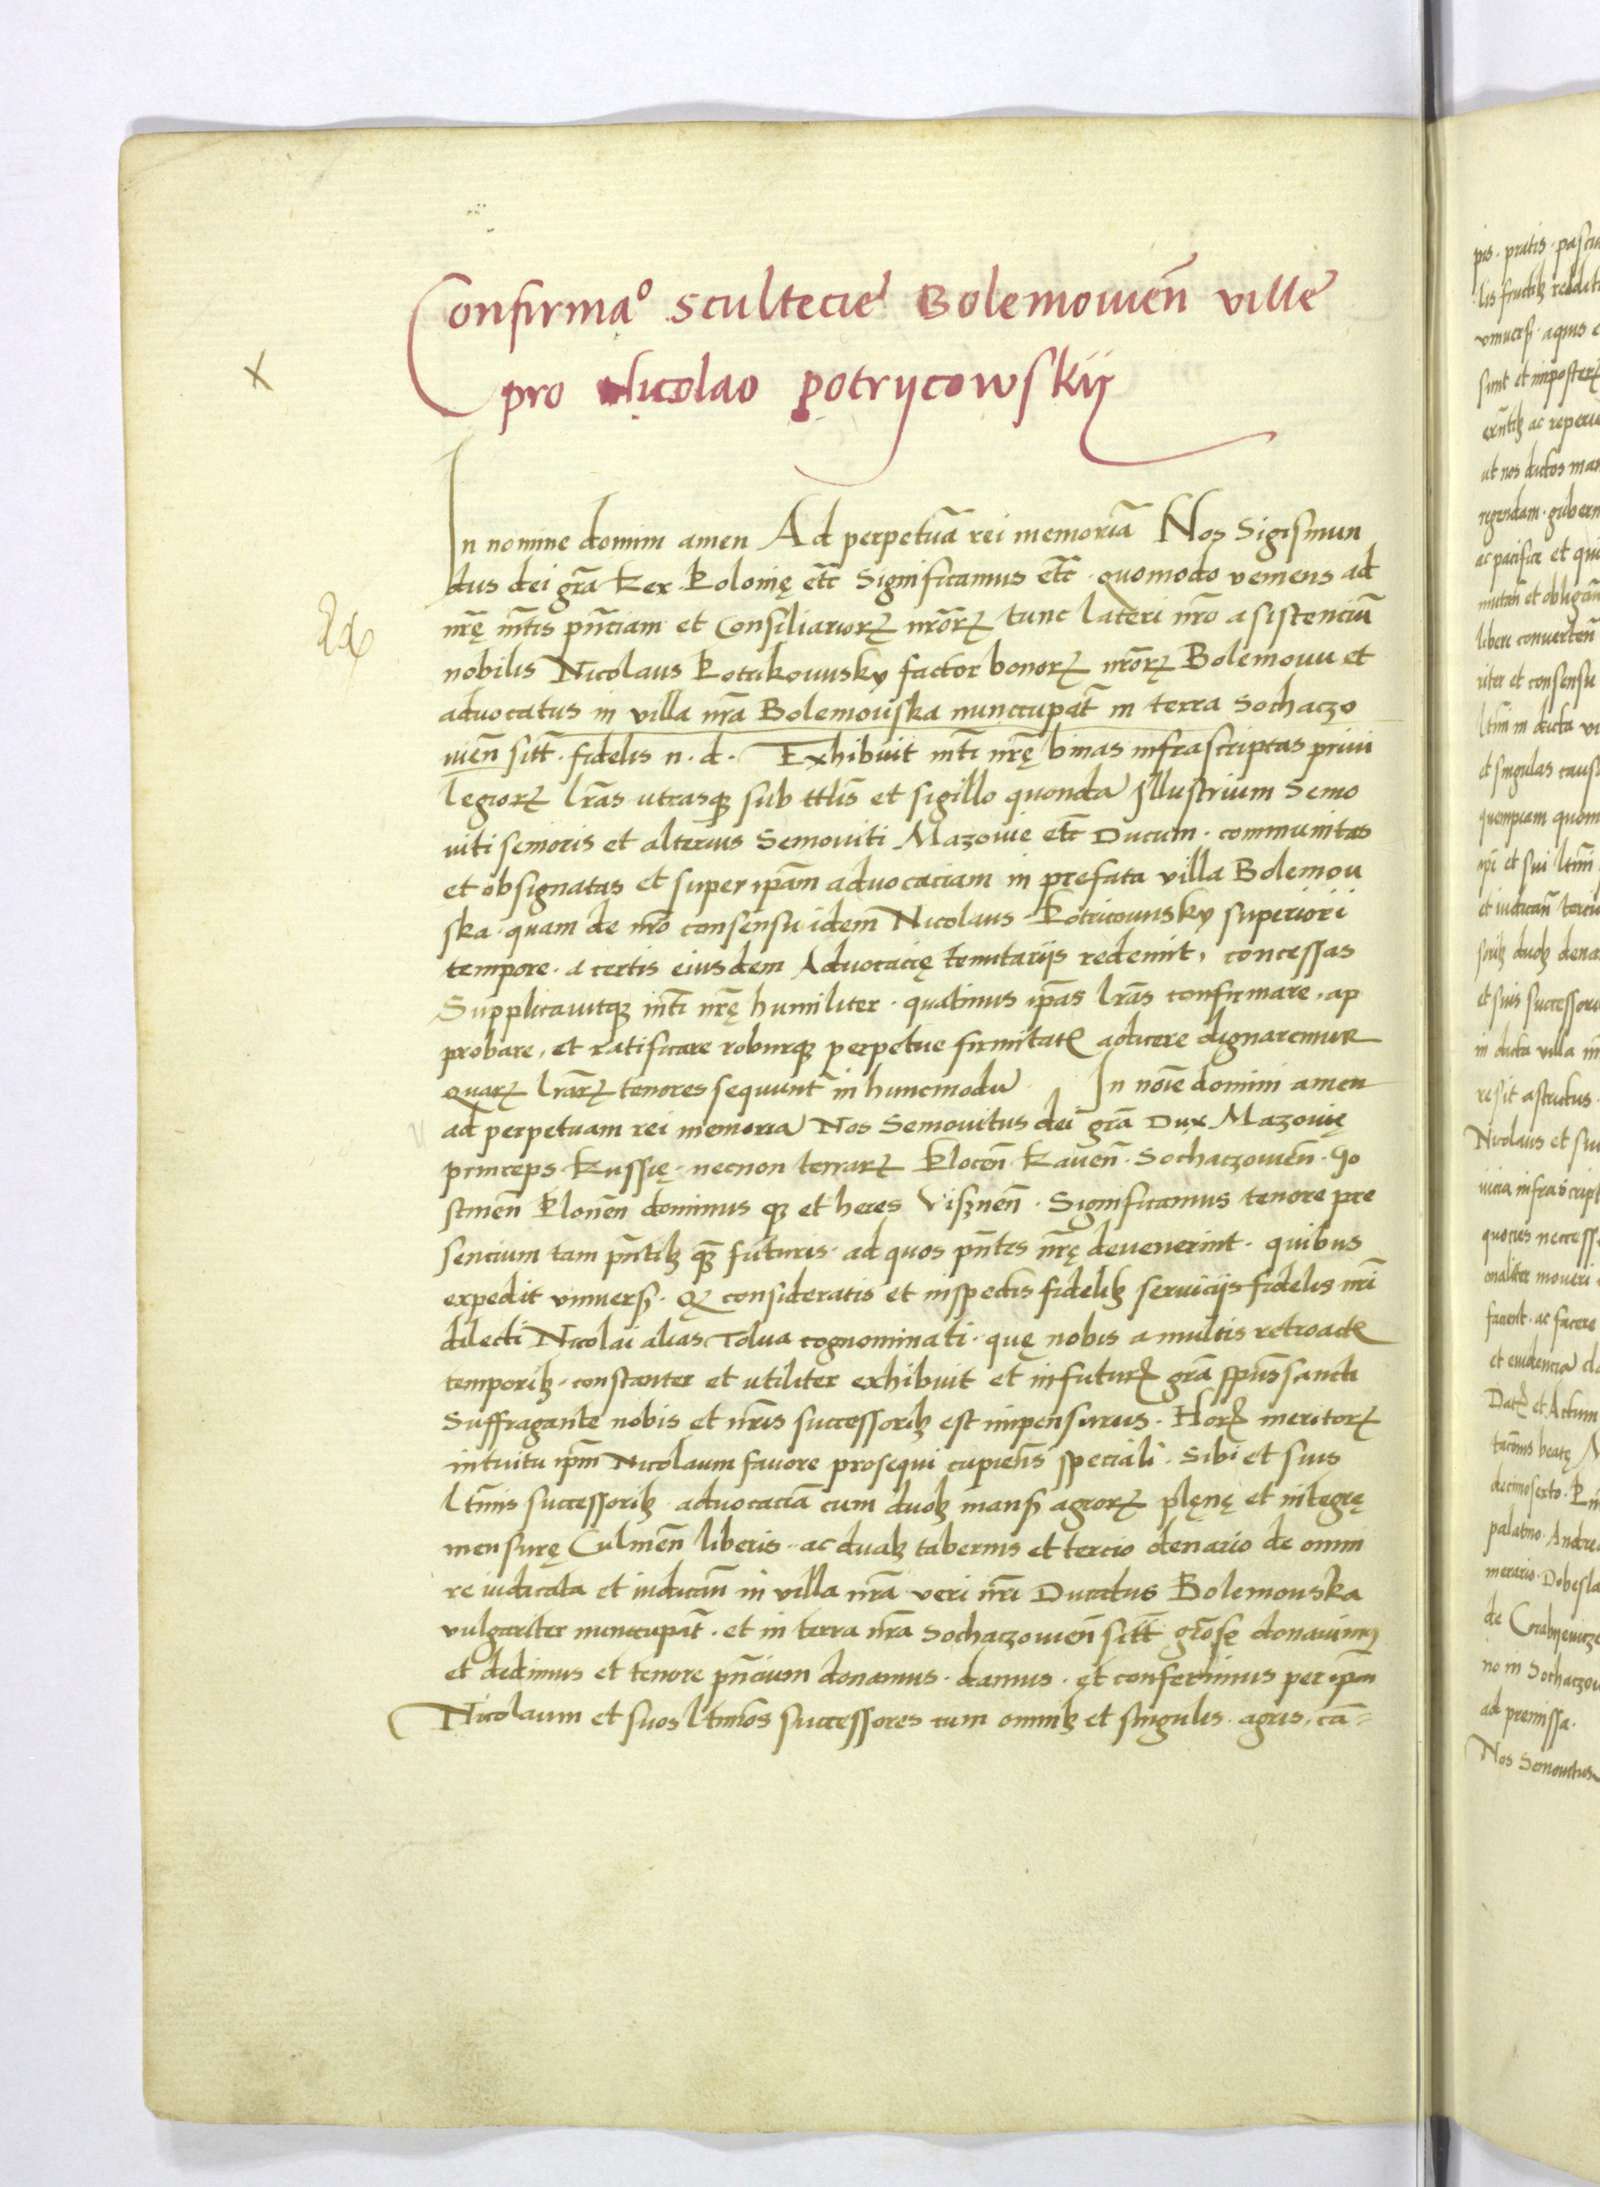 Confirmaº scultecie Bolemowieñ ville
pro Nicolao Potrycowskij
In nomine domini amen Ad perpetuã rei memoriã Nos Sigismun
dus dei grã Rex Polonię etc̃ Significamus etc̃ · quomodo veniens ad
nrę̃ mtĩs pñciam et Consiliarioꝝ nrõꝝ tunc lateri nrõ asistenciũ
nobilis Nicolaus Potrikowsky factor bonoꝝ nrõꝝ Bolemow et
advocatus in villa nrã Bolemowska nuncupat̃ in terra Sochaczo
vieñ sitt̃ · fidelis n. d. Exhibuit mti nrę̃ binas infrascriptas privi
legioꝝ lrãs utrasqꝫ sub ttlĩs et sigillo quondã Illustrium Semo
viti senioris et alterius Semoviti Mazovie etc̃ Ducum · communitas
et obsignatas et super ipãm advocaciam in prefata villa Bolemow
ska · quam de nrõ consensu idem Nicolaus · Potricowsky superiori
tempore · a certis eiusdem Advocacię tenutarijs redemit, concessas
Supplicavitqꝫ mti nrę̃ humiliter · quatinus ipãs lrãs confirmare, ap
probare, et ratificare roburqꝫ perpetue firmitatꝭ adicere dignaremur
Quaꝝ lrãꝝ tenores sequunt̃ in huncmodũ In noĩe domini amen
ad perpetuam rei memoriã Nos Semovitus dei grã Dux Mazovię
princeps Russię · necnon terraꝝ Ploceñ Raveñ · Sochaczovieñ · Go
stineñ Ploneñ dominus qꝫ et heres Visneñ · Significamus tenore pre
sencium tam pñtibꝫ qꝫ̃ futuris · ad quos pñtes nrę̃ devenerint · quibus
expedit universꝭ · Qꝫ consideratis et inspectis fidelibꝫ servicijs fidelis nrĩ
dilecti Nicolai alias Tolua cognominati · quę nobis a multis retroactꝭ
temporibꝫ · constanter et utiliter exhibuit et in futuꝝ grã spũssancti
Suffragante nobis et nrĩs successoribꝫ est impensurus · Hoꝝ meritoꝝ
intuitu ipm̃ Nicolaum favore prosequi cupientes̃ speciali · Sibi et suis
ltĩmis successoribꝫ · advocaciã cum duobꝫ mansꝭ agroꝝ plęnę et integrę
mensurę Culmeñ liberis · ac duabꝫ tabernis et tercio denario de omni
re iudicata et iudicañ in villa nrã veri nrĩ Ducatus Bolemowska
vulgariter nuncupat̃ · et in terra nrã Sochaczovieñ sitt̃ grõse donavimꝰ
et dedimus et tenore pñcium donamus · damus · et conferimus per ipm̃
Nicolaum et suos ltĩmos successores cum omnibꝫ et singulis · agris, cã=